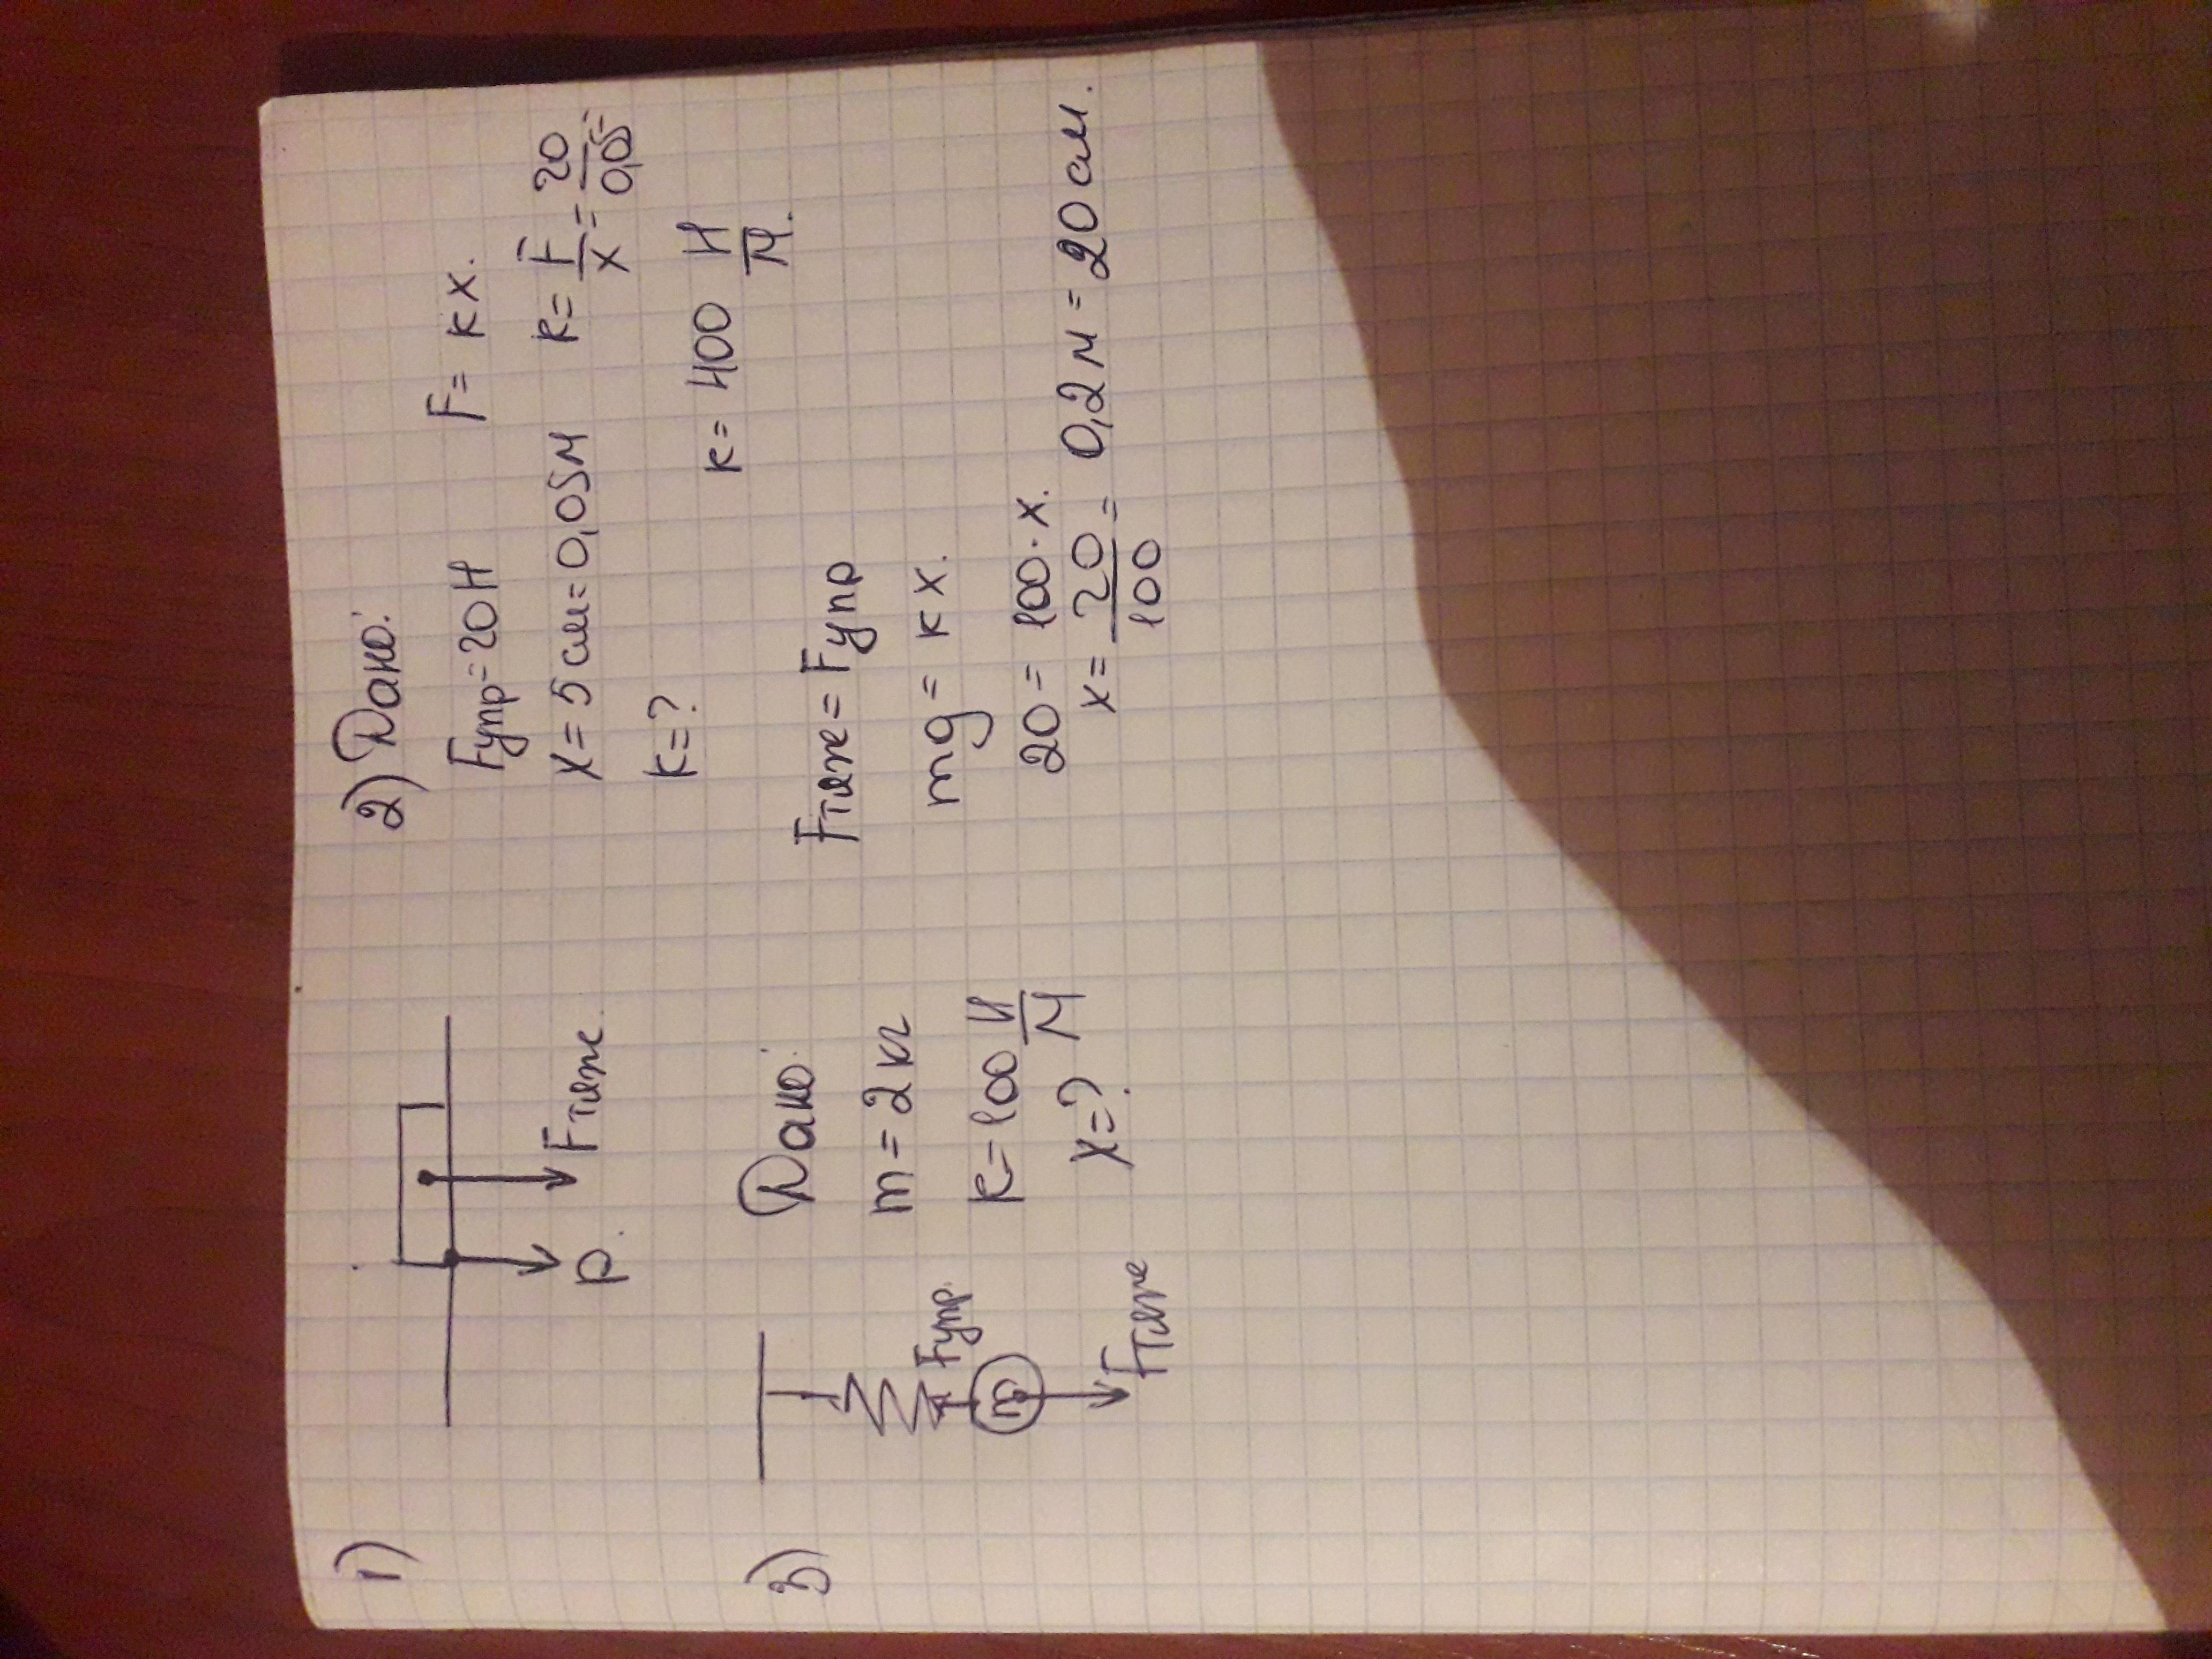 1)
P.
Fтяж.
2) Дано:
Fупр=20Н
x=5см=0,05м
k=?
F= kx.
k= F/x = 20/0,05=
k= 400 Н/м.
3)
Fупр.
m
Fтяж
Дано:
m=2кг
k=100 Н/м
x=?
Fтяж= Fупр
mg= kx.
20= 100·x.
x= 20/100 = 0,2м= 20см.